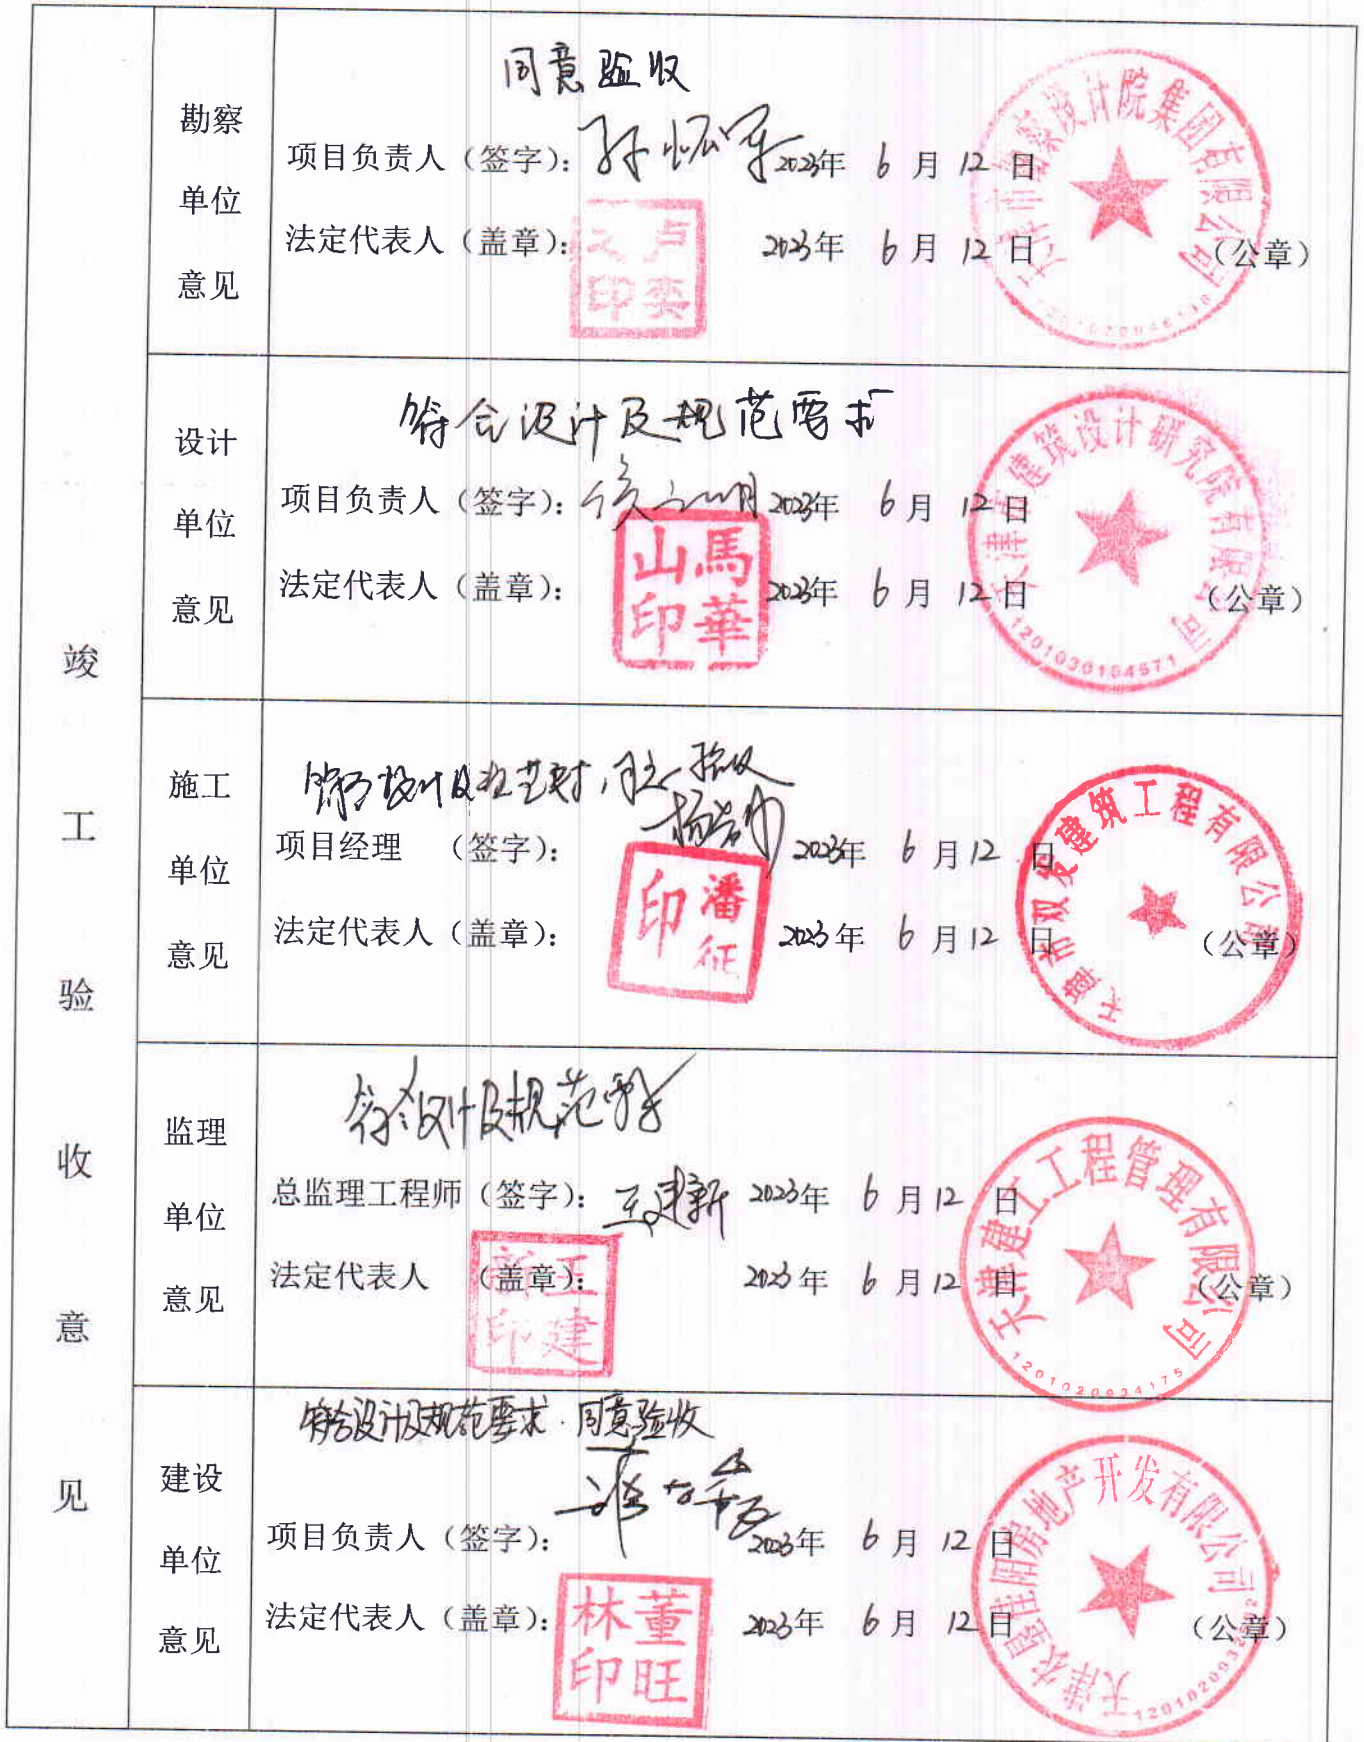 竣工验收意见
勘察单位意见
同意验收
项目负责人（签字）： 2023年 6 月 12 日
法定代表人（盖章）： 2023年 6 月 12 日 （公章）
卢奕之印
天津市勘察设计院集团有限公司
设计单位意见
符合设计及规范要求
项目负责人（签字）： 2023年 6 月 12 日
法定代表人（盖章）： 2023年 6 月 12 日 （公章）
馬華山印
天津市建筑设计研究院有限公司
1201030104671
施工单位意见
符合设计及规范要求，同意验收
项目经理 （签字）： 2023年 6 月 12 日
法定代表人（盖章）： 2023年 6 月 12 日 （公章）
潘征印
天津市双发建筑工程有限公司
监理单位意见
符合设计及规范要求
总监理工程师（签字）：王建新 2023年 6 月 12 日
法定代表人 （盖章）： 2023年 6 月 12 日 （公章）
王建新印
天津建工工程管理有限公司
1201020934175
建设单位意见
符合设计及规范要求．同意验收
项目负责人（签字）： 2023年 6 月 12 日
法定代表人（盖章）： 2023年 6 月 12 日 （公章）
董旺林印
天津农垦佳阳房地产开发有限公司